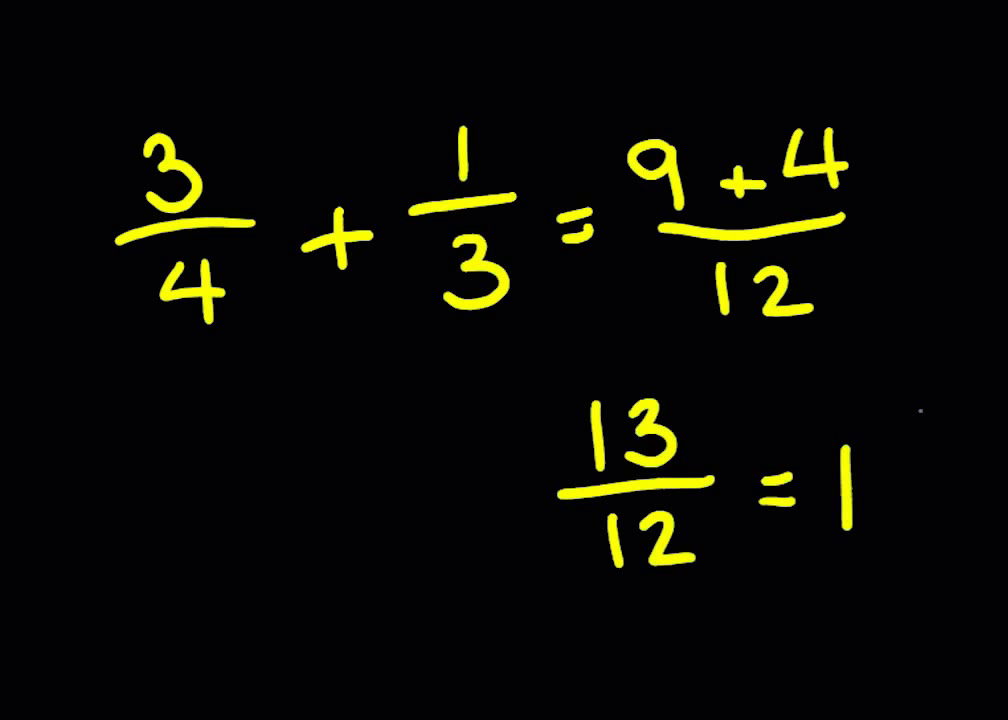 3/4 + 1/3 = (9 + 4)/12
13/12 = 1